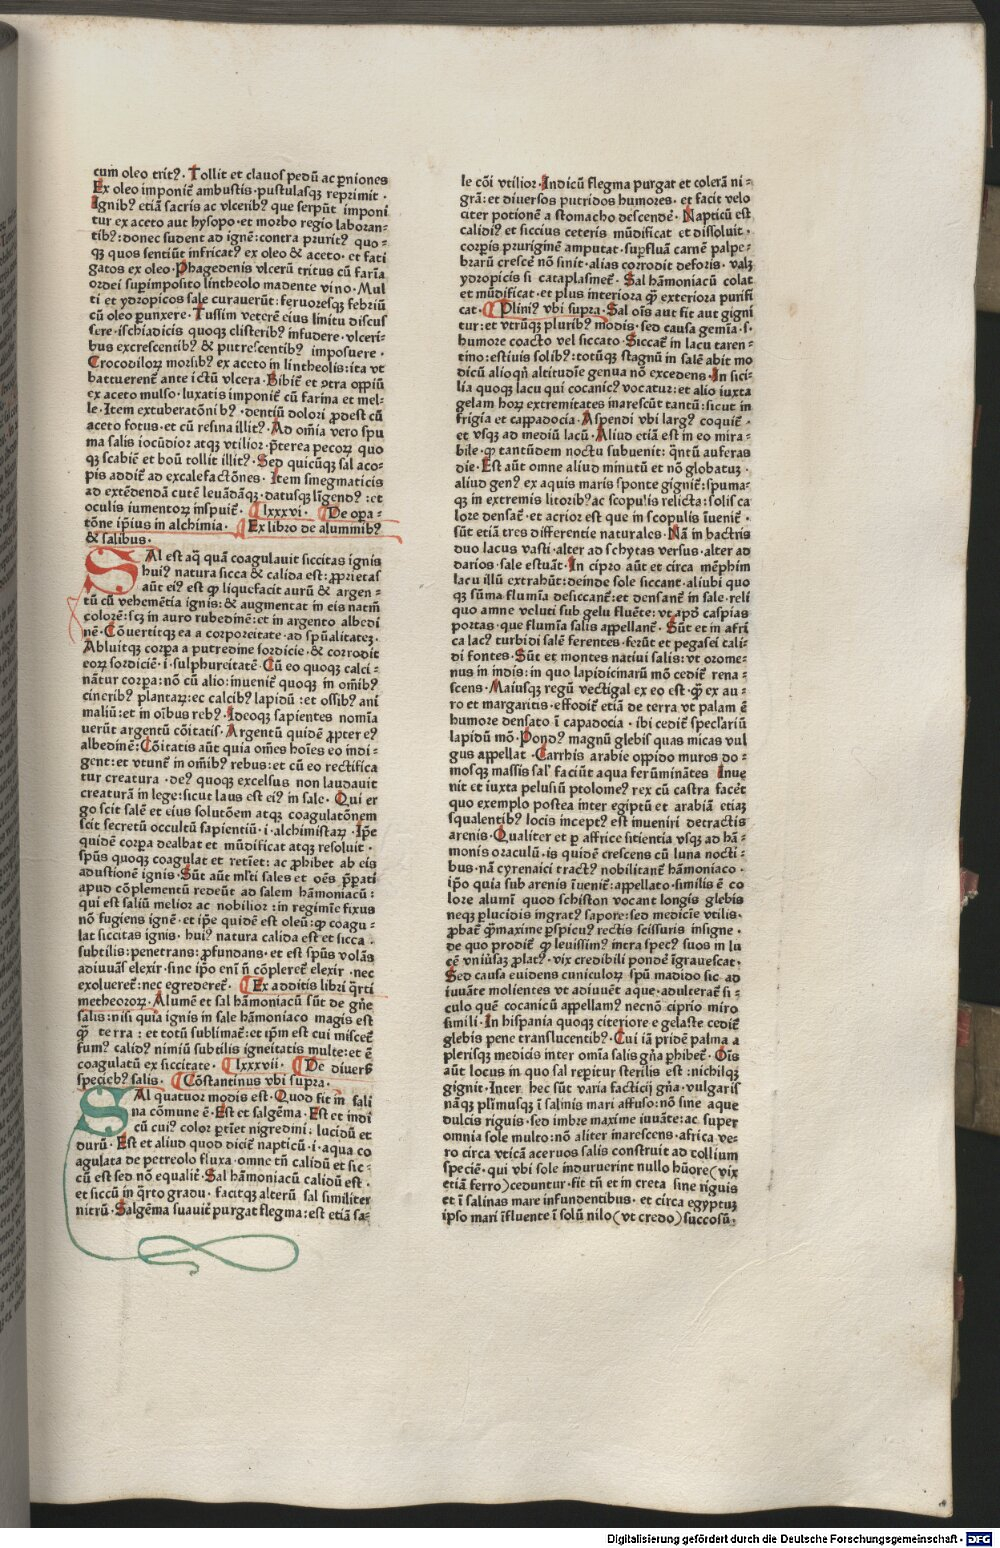 cum oleo tritꝰ. Tollit et clauos pedū ac ꝑniones
Ex oleo imponit᷑ ambustis. pustulasqꝫ reprimit.
Ignibꝰ etiā sacris ac vlceribꝰ que serpūt imponi
tur ex aceto aut hysopo. et morbo regio laboran⸗
tibꝰ: donec sudent ad ignē: contra pruritꝰ quo⸗
qꝫ quos sentiūt infricatꝰ ex oleo & aceto. et fati
gatos ex oleo. Phagedenis vlcerū tritus cū farīa
ordei suꝑimposito lintheolo madente vino. Mul
ti et ydropicos sale curauerūt: feruoresqꝫ febriū
cū oleo ꝑunxere. Tussim veterē eius linitu discus
sere. ischiadicis quoqꝫ clisteribꝰ infudere. vlceri⸗
bus excrescentibꝰ & putrescentibꝰ imposuere.
Crocodiloꝝ morsibꝰ ex aceto in lintheolis: ita vt
battuerent᷑ ante ictū vlcera. Bibit᷑ et ↄtra opiū
ex aceto mulso. luxatis imponit᷑ cū farina et mel⸗
le. Item extuberatōnibꝰ. dentiū dolori ꝓdest cū
aceto fotus. et cū resina illitꝰ. Ad om̄ia vero spu
ma salis iocūdior atqꝫ vtilior. p̄terea pecoꝝ quo
qꝫ scabiē et boū tollit illitꝰ. Sed quicūqꝫ sal aco⸗
pis addit᷑ ad excalefactōnes. Item smegmaticis
ad extēdendā cutē leuādāqꝫ. datusqꝫ līgendꝰ: et
oculis iumentoꝝ inspuit᷑. ¶ lxxxvi. ¶ De oꝑa⸗
tōne ip̄ius in alchimia. ¶ Ex libro de aluminibꝰ
& salibus.
SAl est aq̄ quā coagulauit siccitas ignis
huiꝰ natura sicca & calida est: ꝓprietas
aūt eiꝰ est ꝙ liquefacit aurū & argen⸗
tū cū vehemētia ignis: & augmentat in eis natīū
colorē: scꝫ in auro rubedinē: et in argento albedi
nē. Cōuertitqꝫ ea a corporeitate ad sp̄ualitatēꝫ.
Abluitqꝫ corpꝛa a putredine sordicie. & corrodit
eoꝝ sordiciē. i. sulphureitatē. Cū eo quoqꝫ calci⸗
nātur corpꝛa: nō cū alio: inuenit᷑ quoqꝫ in om̄ibꝰ
cineribꝰ plantaꝝ: ec calcibꝰ lapidū: et ossibꝰ ani
maliū: et in oībus rebꝰ. Ideoqꝫ sapientes nomīa
uerūt argentū cōitatis. Argentū quidē ꝓpter eꝰ
albedinē: Cōitatis aūt quia om̄es hoīes eo indi⸗
gent: et vtunt᷑ in om̄ibꝰ rebus: et cū eo rectifica
tur creatura. deꝰ quoqꝫ excelsus non laudauit
creaturā in lege: sicut laus est eiꝰ in sale. Qui er
go scit salē et eius solutōem atqꝫ coagulatōnem
scit secretū occultū sapientiū. i. alchimistaꝝ. Ip̄e
quidē corpꝛa dealbat et mūdificat atqꝫ resoluit.
sp̄us quoqꝫ coagulat et retīet: ac ꝓhibet ab eis
adustionē ignis. Sūt aūt ml̄ti sales et oēs p̄parati
apud cōplementū redeūt ad salem hāmoniacū:
qui est saliū melior ac nobilior: in regimīe fixus
nō fugiens ignē. et ip̄e quidē est oleū: ꝙ coagu⸗
lat siccitas ignis. huiꝰ natura calida est et sicca.
subtilis: penetrans: ꝓfundans. et est sp̄us volās
adiuuās elexir. sine ip̄o eni᷑ n̄ cōpleret᷑ elexir. nec
exolueret᷑: nec egrederet᷑. ¶ Ex additis libri q̄rti
metheoroꝝ. Alumē et sal hāmoniacū sūt de gn̄e
salis: nisi quia ignis in sale hāmoniaco magis est
q̄ꝫ terra: et totū sublimat᷑: et ip̄m est cui miscet᷑
fumꝰ calidꝰ nimiū subtilis igneitatis multe: et ē
coagulatū ex siccitate. ¶ lxxxvii. ¶ De diuers̄
speciebꝰ salis. ¶ Cōstantinus vbi supra.
SAl quatuor modis est. Quod fit in sali
na cōmune ē. Est et salgēma. Est et indi
cū cuiꝰ color ꝑtīet nigredini: lucidū et
durū. Est et aliud quod dicit᷑ napticū. i. aqua co
agulata de petreolo fluxa. omne tn̄ calidū et sic⸗
cū est sed nō equalit᷑. Sal hāmoniacū calidū est.
et siccū in q̄rto gradu. facitqꝫ alterū sal similiter
nitrū. Salgēma suauit᷑ purgat flegma: est etiā sa⸗
le cōi vtilior. Indicū flegma purgat et colerā ni⸗
grā: et diuersos putridos humores. et facit velo
citer potionē a stomacho descendē. Napticū est
calidiꝰ et siccius ceteris mūdificat et dissoluit.
corꝑis pruriginē amputat. suꝑfluā carnē palpe⸗
brarū crescē nō sinit. alias corrodit deforis. valꝫ
ydropicis si cataplasmet᷑. Sal hāmoniacū colat
et mūdificat. et plus interiora q̄ꝫ exteriora purifi
cat. ¶ Pliniꝰ vbi supra. Sal oīs aut fit aut gigni
tur: et vtrūqꝫ pluribꝰ modis. sed causa gemīa. s.
humore coacto vel siccato. Siccat᷑ in lacu taren⸗
tino: estiuis solibꝰ: totūqꝫ stagnū in salē abit mo
dicū alioqn̄ altitudīe genua nō excedens. In sici⸗
lia quoqꝫ lacu qui cocanicꝰ vocatur: et alio iuxta
gelam hoꝝ extremitates inarescūt tantū: sicut in
frigia et cappadocia. Aspendi vbi largꝰ coquit᷑.
et vsqꝫ ad mediū lacū. Aliud etiā est in eo mira⸗
bile. ꝙ tantūdem noctu subuenit: q̄ntū auferas
die. Est aūt omne aliud minutū et nō globatuꝫ.
aliud genꝰ ex aquis maris sponte gignit᷑: spuma⸗
qꝫ in extremis litoribꝰ ac scopulis relicta: solis ca
lore densat᷑. et acrior est que in scopulis īuenit᷑.
sūt etiā tres differentie naturales. Nā in bactris
duo lacus vasti. alter ad schytas versus. alter ad
darios. sale estuāt. In cipro aūt et circa mēphim
lacu illū extrahūt: deinde sole siccant. aliubi quo
qꝫ sūma flumīa desiccant᷑: et densant᷑ in sale. reli
quo amne veluti sub gelu fluēte: vt apꝺ caspias
portas. que flumīa salis appellant᷑. Sūt et in afri
ca lacꝰ turbidi salē ferentes. ferūt et pegasei cali⸗
di fontes. Sūt et montes natiui salis: vt orome⸗
nus in indis: in quo lapidicinarū mō cedit᷑ rena⸗
scens. Maiusqꝫ regū vectigal ex eo est. q̄ꝫ ex au⸗
ro et margaritis. effodit᷑ etiā de terra vt palam ē
humore densato ī capadocia. ibi cedit᷑ speclariū
lapidū mō. Pondꝰ magnū glebis quas micas vul
gus appellat. Carrhis arabie oppido muros do⸗
mosqꝫ massis sal᷑ faciūt aqua ferūminātes. Inue
nit et iuxta pelusiū ptolomeꝰ rex cū castra facēt᷑
quo exemplo postea inter egiptū et arabiā etiaꝫ
squalentibꝰ locis inceptꝰ est inueniri detractis
arenis. Qualiter et ꝑ affrice sitientia vsqꝫ ad hā⸗
monis oraculū. is quidē crescens cū luna nocti⸗
bus. nā cyrenaici tractꝰ nobilitant᷑ hāmoniaco.
ip̄o quia sub arenis īuenit᷑: appellato. similis ē co
lore alumī quod schiston vocant longis glebis
neqꝫ ꝑlucidis ingratꝰ sapore: sed medicīe vtilis.
ꝓbat᷑ q̄ꝫmaxime ꝑspicuꝰ rectis scissuris insigne.
de quo prodit᷑ ꝙ leuissimꝰ intra specꝰ suos in lu
cē vniūsaꝫ ꝓlatꝰ. vix credibili pondē īgrauescat.
Sed causa euidens cuniculoꝝ spū madido sic ad
iuuāte molientes vt adiuuēt aque. adulterat᷑ si⸗
culo quē cocanicū appellamꝰ necnō ciprio miro
simili. In hispania quoqꝫ citeriore egelaste cedit᷑
glebis pene translucentibꝰ. Cui iā pridē palma a
plerisqꝫ medicis inter omīa salis gn̄a ꝑhibet᷑. Oīs
aūt locus in quo sal reꝑitur sterilis est: nichilqꝫ
gignit. Inter hec sūt varia facticij gn̄a. vulgaris
nāqꝫ plīmusqꝫ ī salinis mari affuso: nō sine aque
dulcis riguis. sed imbre maxime iuuāte: ac super
omnia sole multo: nō aliter inarescens. africa ve⸗
ro circa vticā aceruos salis construit ad collium
speciē. qui vbi sole induruerint nullo hūore (vix
etiā ferro) ceduntur. fit tn̄ et in creta sine riguis
et ī salinas mare infundentibus. et circa egyptuꝫ
ipso mari īfluente ī solū nilo (vt credo) succosū.
Digitalisierung gefördert durch die Deutsche Forschungsgemeinschaft · DFG